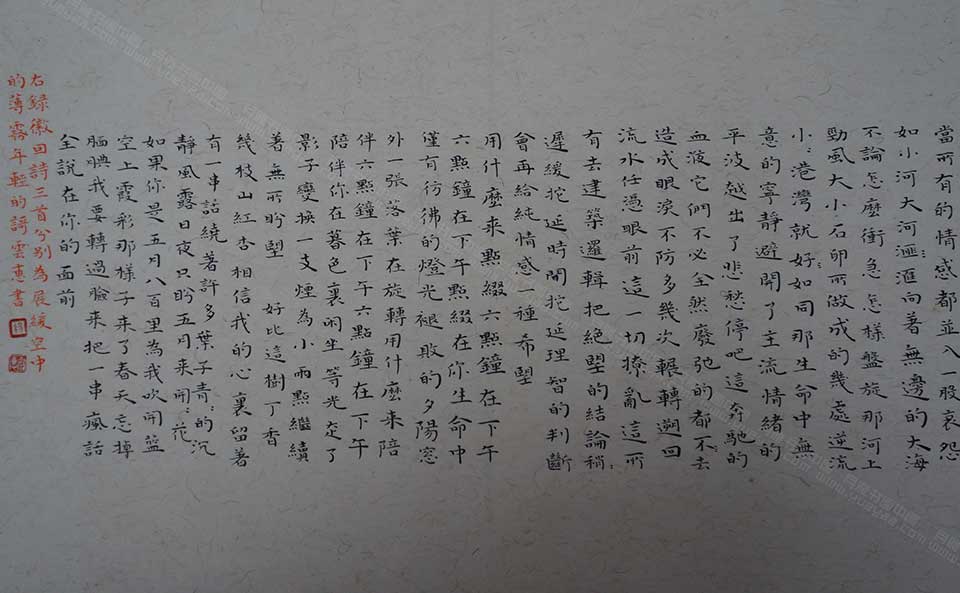 當所有的情感都並入一股哀怨
如小河大河滙滙向著無邊的大海
不論怎麼衝急怎樣盤旋那河上
勁風大小石卵所做成的幾處逆流
小〻港灣就好如同那生命中無
意的寧靜避開了主流情緒的
平波越出了悲愁停吧這奔馳的
血液它們不必全然廢弛的都不去
造成眼淚不防多幾次輾轉溯回
流水任憑眼前這一切撩亂這所
有去建築邏輯把絕望的結論稍〻
遲緩拕延時間拕延理智的判斷
會再給純情感一種希望
用什麼來點綴六點鐘在下午
六點鐘在下午點綴在你生命中
僅有彷彿的燈光褪敗的夕陽窗
外一張落葉在旋轉用什麼來陪
伴六點鐘在下午六點鐘在下午
陪伴你在暮色裏闲坐等光走了
影子變換一支煙為小雨點繼續
著無所盼望 好比這樹丁香
幾枝山紅杏相信我的心裏留著
有一串話繞著許多葉子青〻的沉
靜風露日夜只盼五月来開〻花
如果你是五月八百里為我吹開藍
空上霞彩那樣子来了春天忘掉
腼腆我要轉過臉来把一串瘋話
全說在你的面前
右錄徽因詩三首分別為展緩空中
的薄霧年輕的謌雲惠書